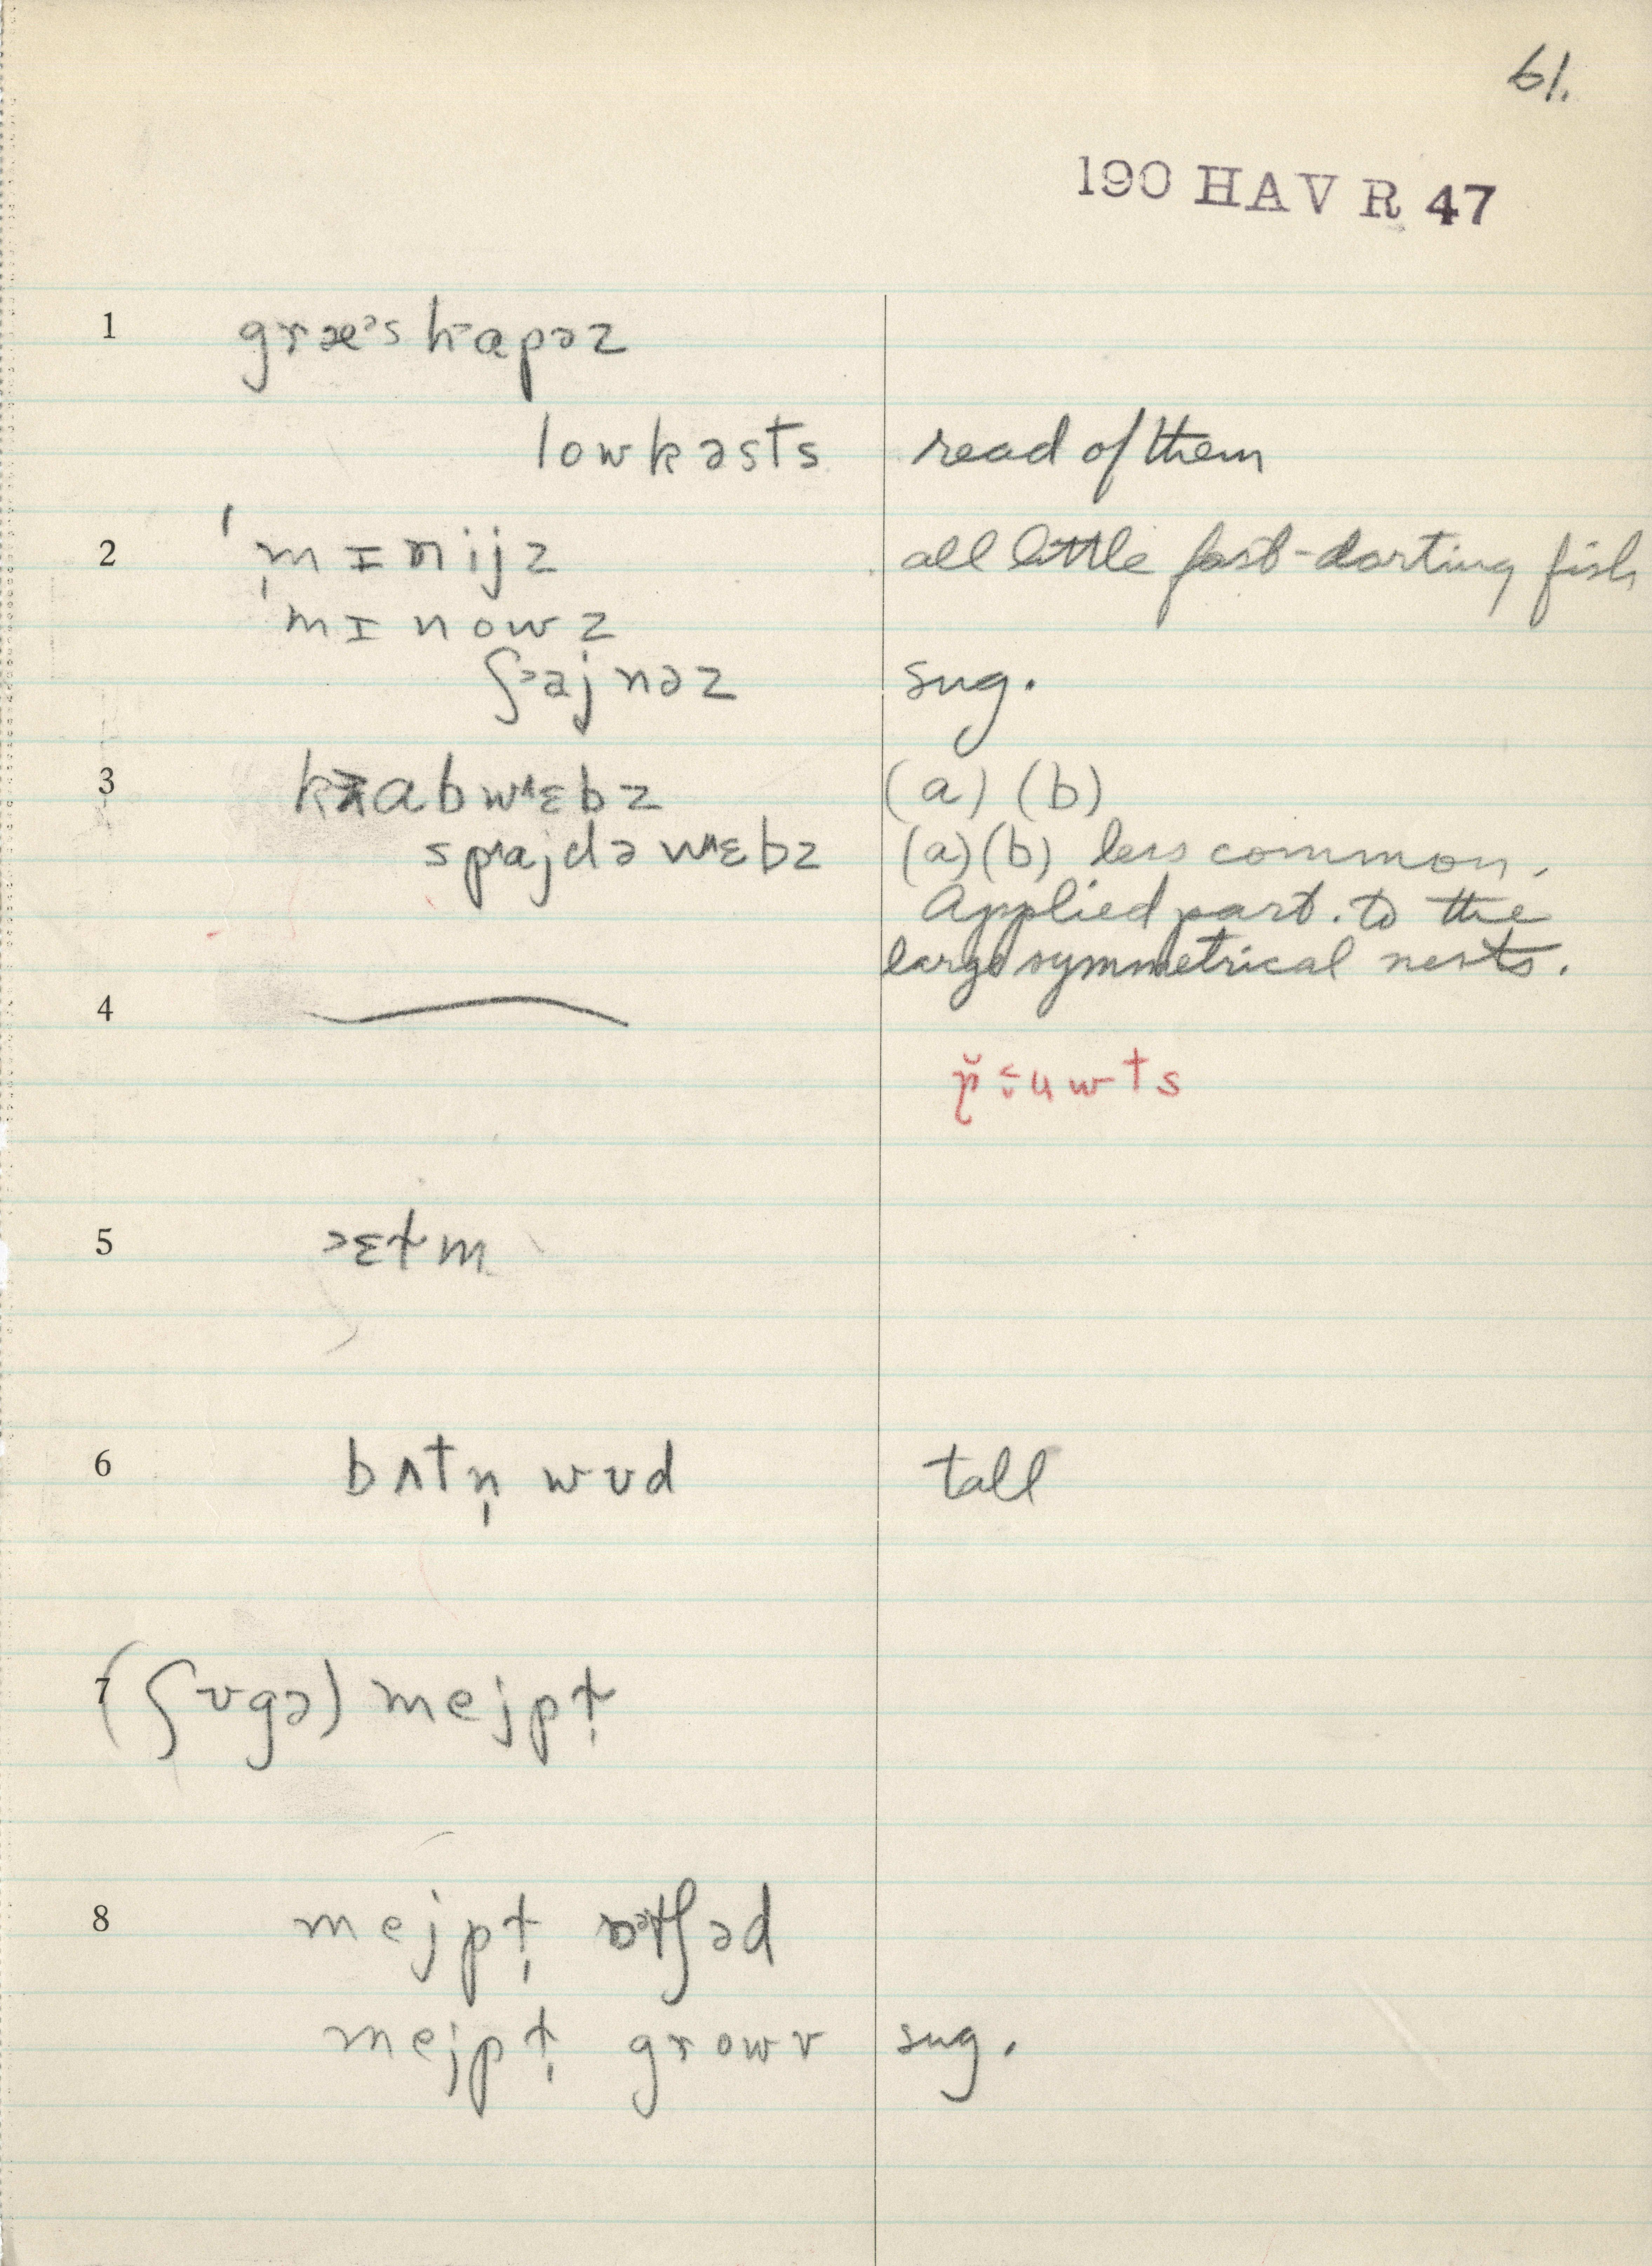 61.
190 HAV R 47
1 græᵊs hapəz
lowkəsts read of them
2 ˈmɪnijz all little fast-darting fish
ˈmɪnowz
ʃᵊajnəz sug.
3 abwᴧɛbz (a) (b)
spᴧajdəwᴧɛbz (a)(b) less common.
Applied part. to the
large symmetrical nests.
4
5 ᵊɛɫm
6 bʌtn̩ wʊd tall
7 (ʃʊgə) mejpɫ̩
8 mejpɫ̩ əd
mejpɫ̩ growv sug.